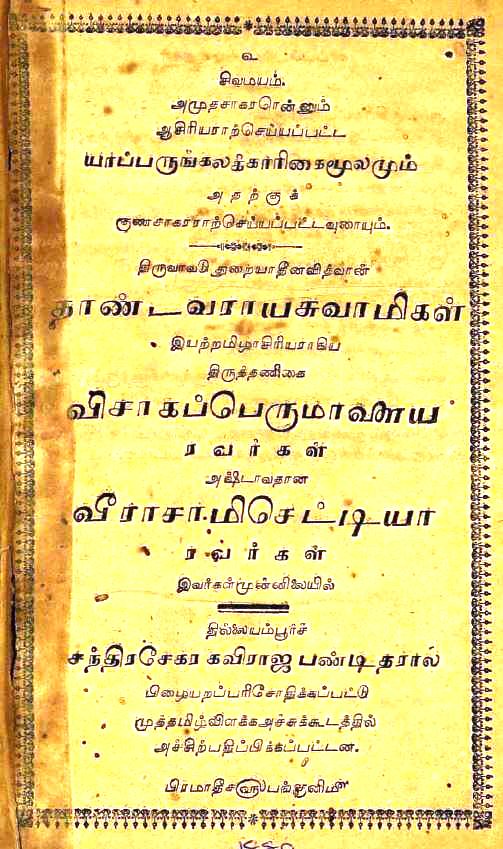 உ
சிவமயம்.
அமுதசாகரரென்னும்
ஆசிரியராற்செய்யப்பட்ட
யாப்பருங்கலக்காரிகைமூலமும்
அதற்குக்
குணசாகரராற்செய்யப்பட்டவுரையும்.
திருவாவடுதுறையாதீனவித்வான்
தாண்டவராயசுவாமிகள்
இயற்றமிழாசிரியராகிய
திருத்தணிகை
விசாகப்பெருமாளைய
ரவர்கள்
அஷ்டாவதான
வீராசாமிசெட்டியா
ரவர்கள்
இவர்கள்முன்னிலையில்
தில்லையம்பூர்ச்
சந்திரசேகர கவிராஜ பண்டிதரால்
பிழையறப்பரிசோதிக்கப்பட்டு
முத்தமிழ்விளக்கஅச்சுக்கூடத்தில்
அச்சிற்பதிப்பிக்கப்பட்டன.
பிரமாதீச௵பங்குனிமீ